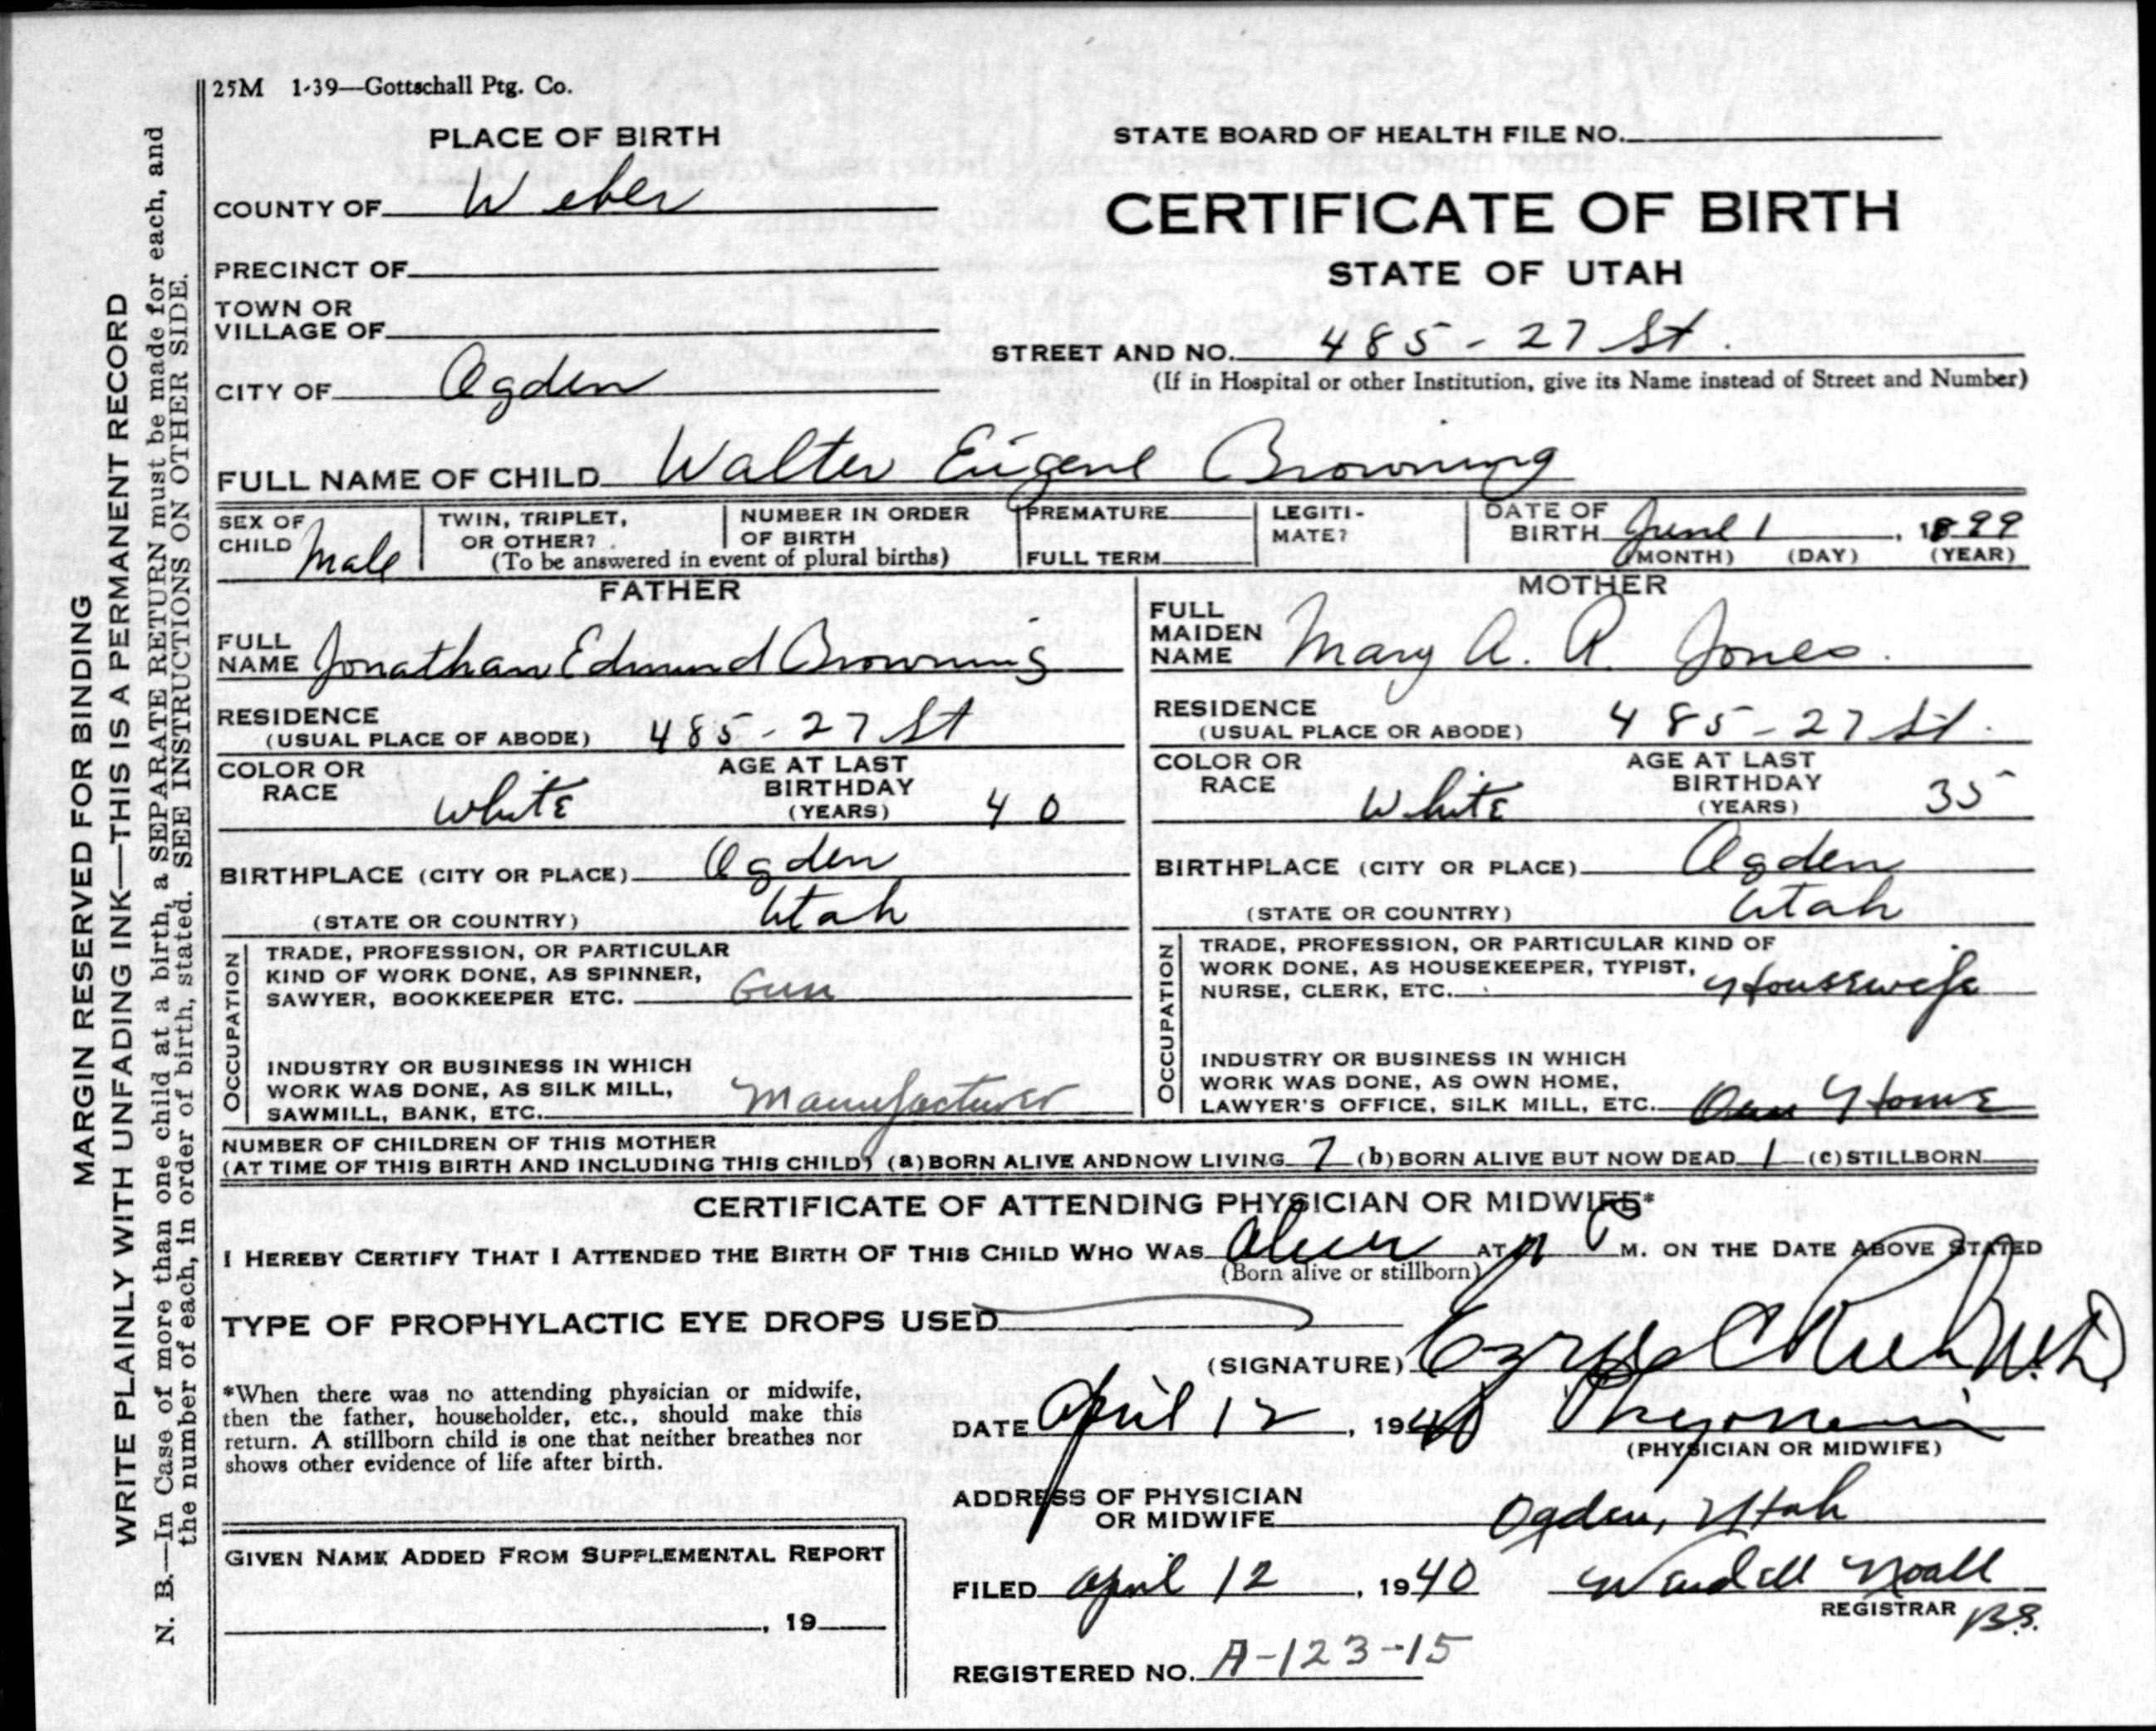 25M 1-39—Gottschall Ptg. Co.
PLACE OF BIRTH
STATE BOARD OF HEALTH FILE NO.
COUNTY OF Weber
CERTIFICATE OF BIRTH
PRECINCT OF
STATE OF UTAH
TOWN OR
VILLAGE OF
STREET AND NO. 485 - 27 St.
(If in Hospital or other Institution, give its Name instead of Street and Number)
CITY OF Ogden
FULL NAME OF CHILD Walter Eugene Browning
SEX OF CHILD Male
TWIN, TRIPLET, OR OTHER?
NUMBER IN ORDER OF BIRTH
(To be answered in event of plural births)
PREMATURE
FULL TERM
LEGITI-
MATE?
DATE OF BIRTH June 1, 1899
(MONTH) (DAY) (YEAR)
FATHER
FULL NAME Jonathan Edmund Browning
RESIDENCE
(USUAL PLACE OF ABODE) 485 - 27 St
COLOR OR RACE white
AGE AT LAST BIRTHDAY (YEARS) 40
BIRTHPLACE (CITY OR PLACE) Ogden
(STATE OR COUNTRY) Utah
OCCUPATION
TRADE, PROFESSION, OR PARTICULAR
KIND OF WORK DONE, AS SPINNER,
SAWYER, BOOKKEEPER ETC. Gun
INDUSTRY OR BUSINESS IN WHICH
WORK WAS DONE, AS SILK MILL,
SAWMILL, BANK, ETC. Manufacturer
MOTHER
FULL MAIDEN NAME Mary A. R. Jones.
RESIDENCE
(USUAL PLACE OR ABODE) 485 - 27 St.
COLOR OR RACE White
AGE AT LAST BIRTHDAY (YEARS) 35
BIRTHPLACE (CITY OR PLACE) Ogden
(STATE OR COUNTRY) Utah
OCCUPATION
TRADE, PROFESSION, OR PARTICULAR KIND OF
WORK DONE, AS HOUSEKEEPER, TYPIST,
NURSE, CLERK, ETC. Housewife
INDUSTRY OR BUSINESS IN WHICH
WORK WAS DONE, AS OWN HOME,
LAWYER'S OFFICE, SILK MILL, ETC. Own Home
NUMBER OF CHILDREN OF THIS MOTHER
(AT TIME OF THIS BIRTH AND INCLUDING THIS CHILD) (a) BORN ALIVE AND NOW LIVING 7 (b) BORN ALIVE BUT NOW DEAD 1 (c) STILLBORN
CERTIFICATE OF ATTENDING PHYSICIAN OR MIDWIFE*
I HEREBY CERTIFY THAT I ATTENDED THE BIRTH OF THIS CHILD WHO WAS Alive AT P M. ON THE DATE ABOVE STATED
(Born alive or stillborn)
TYPE OF PROPHYLACTIC EYE DROPS USED
(SIGNATURE) Ezra C Rich M.D.
*When there was no attending physician or midwife,
then the father, householder, etc., should make this
return. A stillborn child is one that neither breathes nor
shows other evidence of life after birth.
DATE April 12, 1940 Physician
(PHYSICIAN OR MIDWIFE)
ADDRESS OF PHYSICIAN
OR MIDWIFE Ogden, Utah
GIVEN NAME ADDED FROM SUPPLEMENTAL REPORT
, 19
FILED April 12, 1940 Wendell Noall
REGISTRAR B.S.
REGISTERED NO. A-123-15
MARGIN RESERVED FOR BINDING
WRITE PLAINLY WITH UNFADING INK—THIS IS A PERMANENT RECORD
N. B.—In Case of more than one child at a birth, a SEPARATE RETURN must be made for each, and
the number of each, in order of birth, stated. SEE INSTRUCTIONS ON OTHER SIDE.